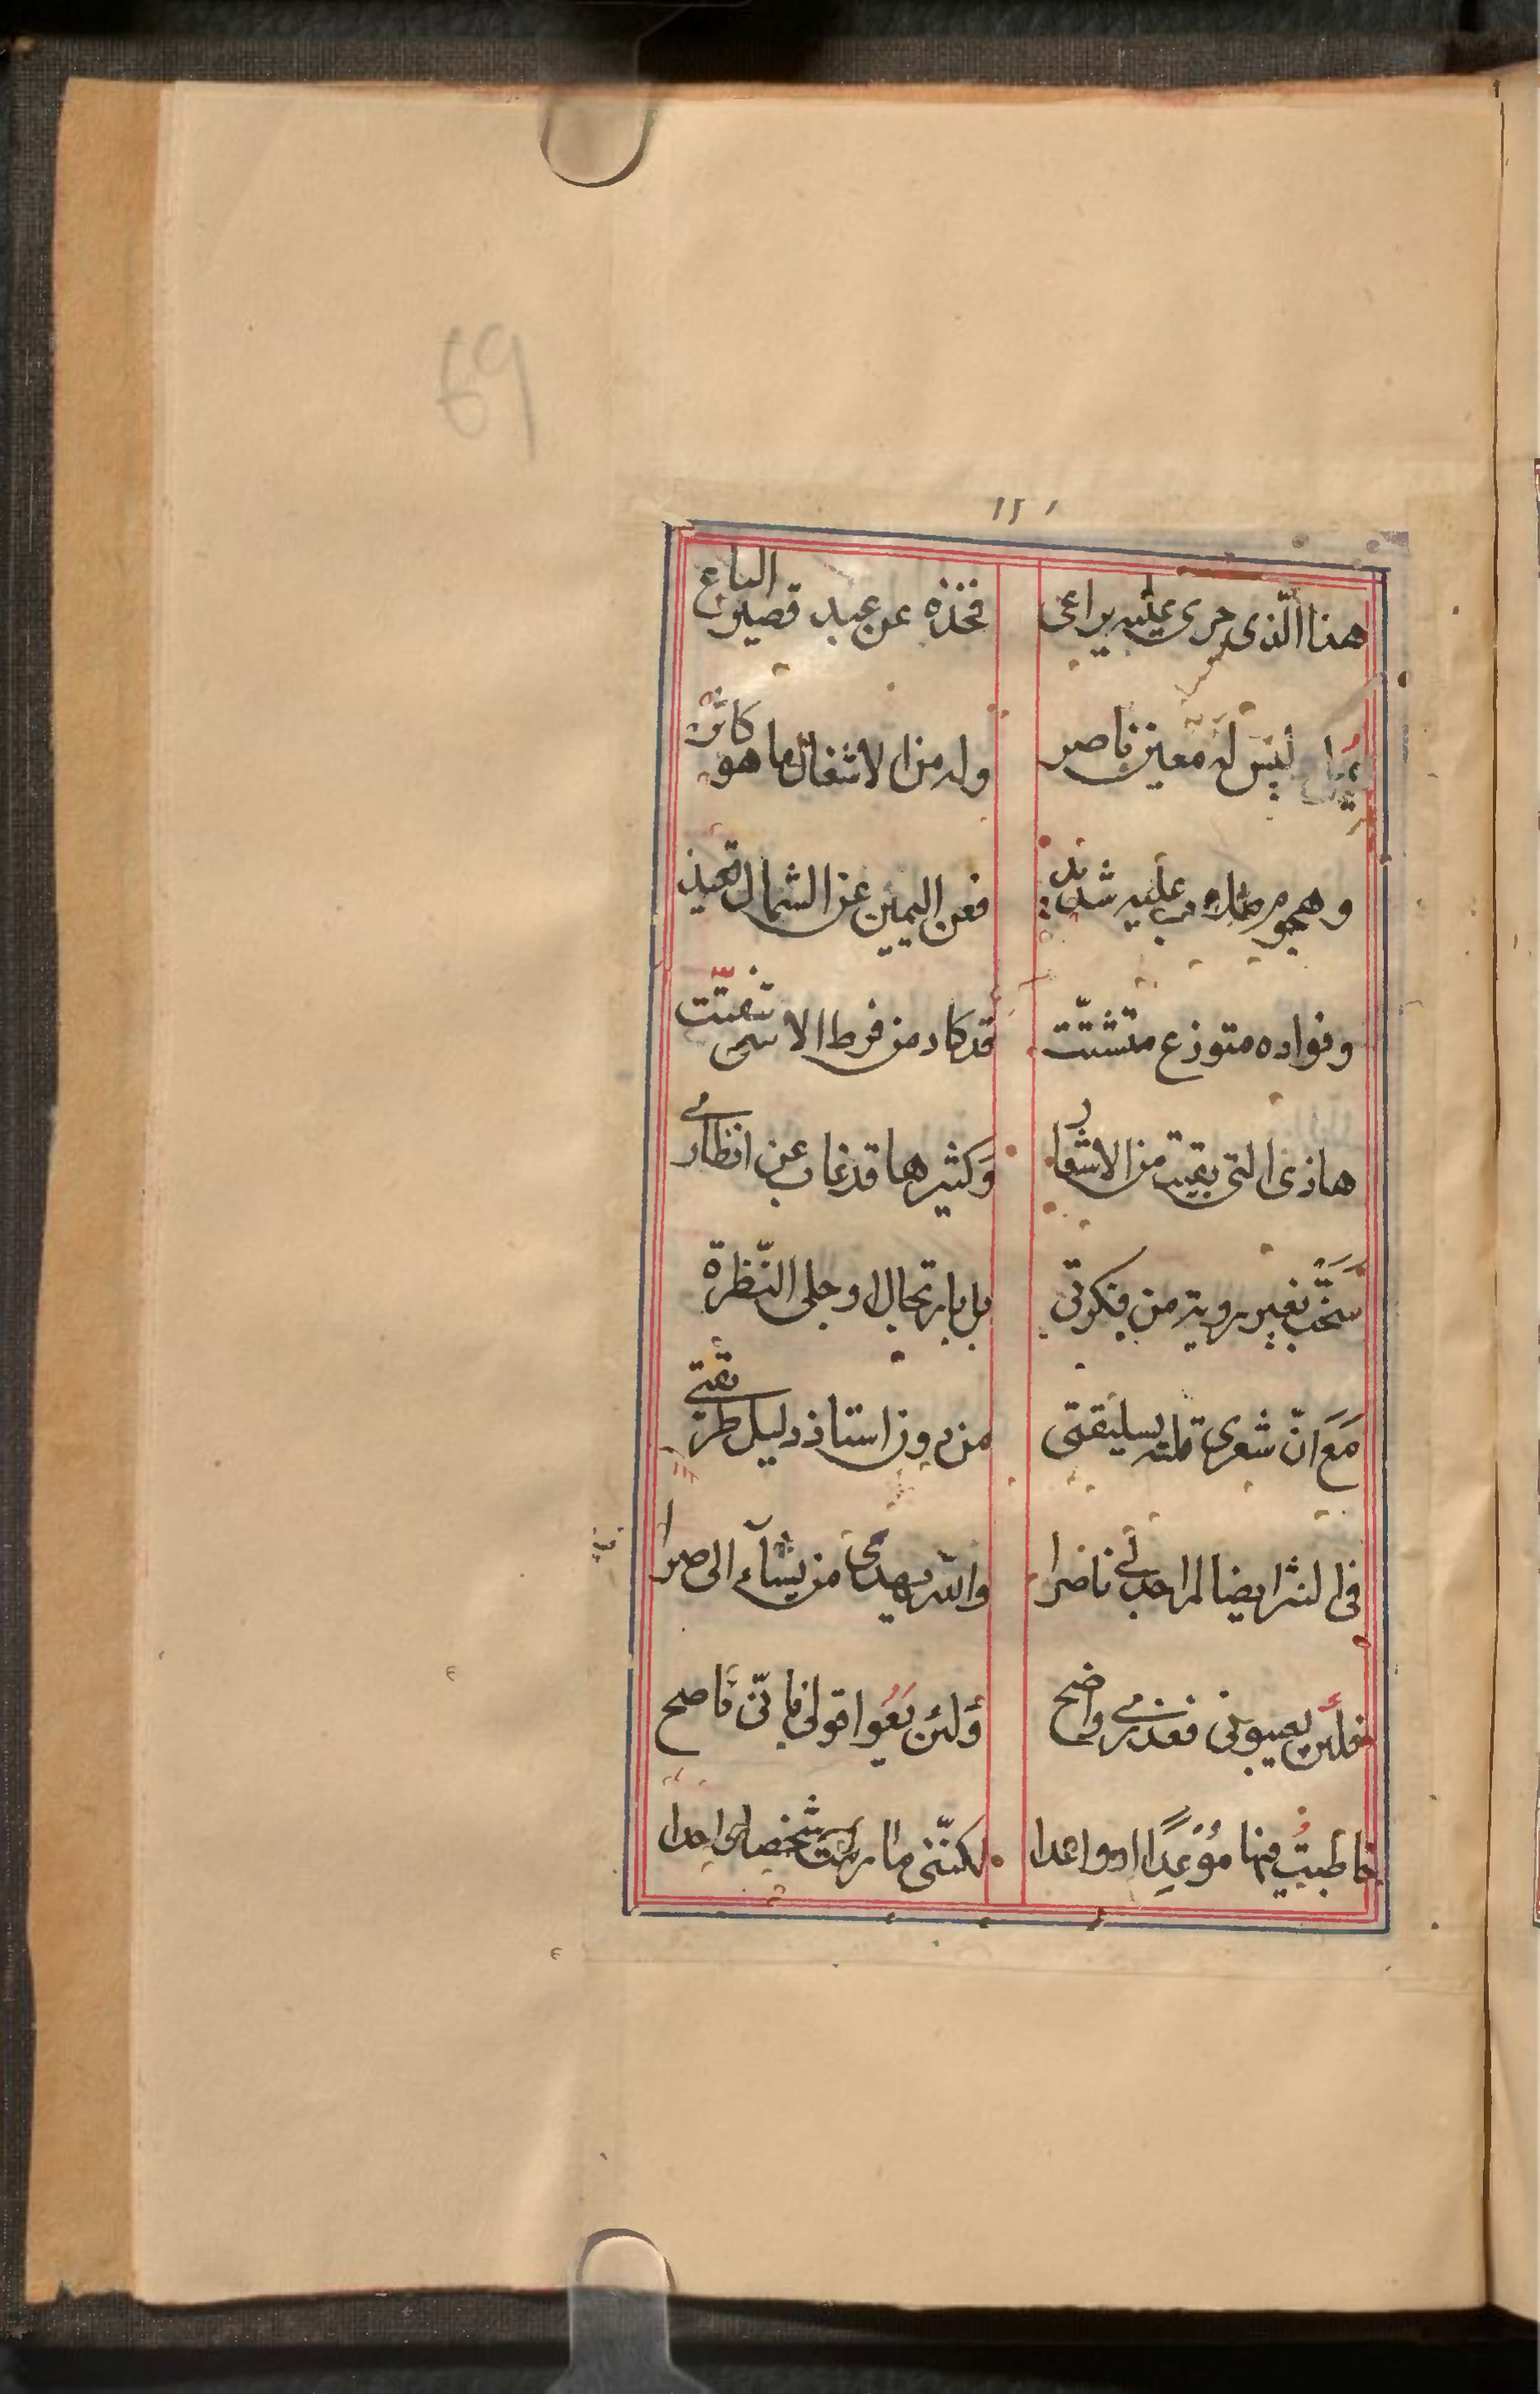 69
هذا الّذى جرى عليه يراعى فخذه عن عبد قصير الباع
ليس له معين ناصر وله من الاشغال ما هو كاثر
وهجوم عليه شديد فعن اليمين عن الشمال تحيد
وفواده متوزع متشتّت قد كاد من فرط الاسى تفتّت
هاذى التى بقيت من الاشعار وكثيرها قد غاب عن انظارى
سنحت بغير روية من فكرتى بل بارتجال وجلى النّظرة
مَعَ انّ شعرى قلته بسليقتى من دون استاذ دليل طريقتى
فى النثر ايضا لم اجد لى ناصرا والله يهدى من يشآء الى صرا
فلئن يعيبونى فعذرى واضح وَلئن يَعُوا قولى فانّى ناصح
خاطبتُ فيها مُوْعِدًا او واعدا لكنّنى ما رمت شخصا واحدا